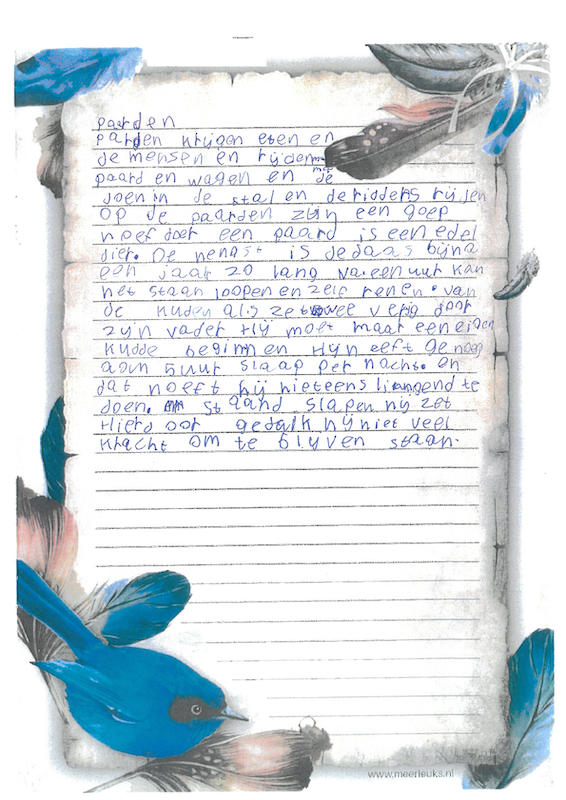 paarden
parden krijgen eten en
de mensen en rijden met
paard en wagen en de
doen in de stal en de ridders rijen
op de paarden zbijn een goep
hoef doer een paard is een edel
dier. De henast is de daas bijna
een jaar zo lang na een uur kan
het staan loopen en zelf renen. van
de kuden als ze twee verig door
zijn vader Hij moet maar een eigen
kudde beginn en Hijn eeft ge noeg
aan 5 uur slaap per nacht. en
dat hoeft hij niet eens liangend te
doen. staand slapen hij zet
Hierd oor gedalk hij niet veel
kracht om te blijven staan.
www.meerleuks.nl